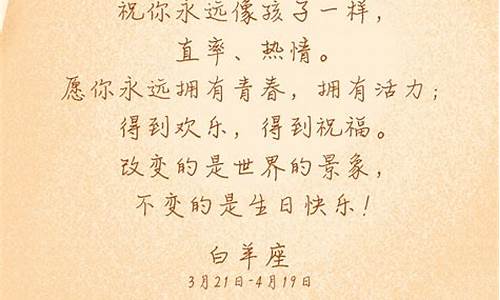 祝你永远像孩子一样，
直率、热情。
愿你永远拥有青春，拥有活力；
得到欢乐，得到祝福。
改变的是世界的景象，
不变的是生日快乐！
白羊座
3月21日-4月19日